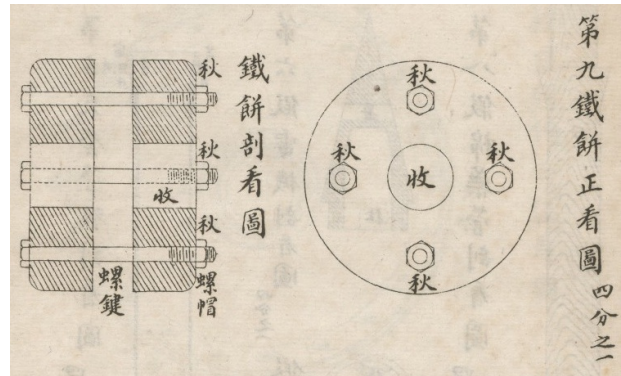 第九鐵餅正看圖四分之一
秋
秋
收
秋
秋
鐵餅剖看圖
秋
秋
收
秋
螺帽
螺鍵